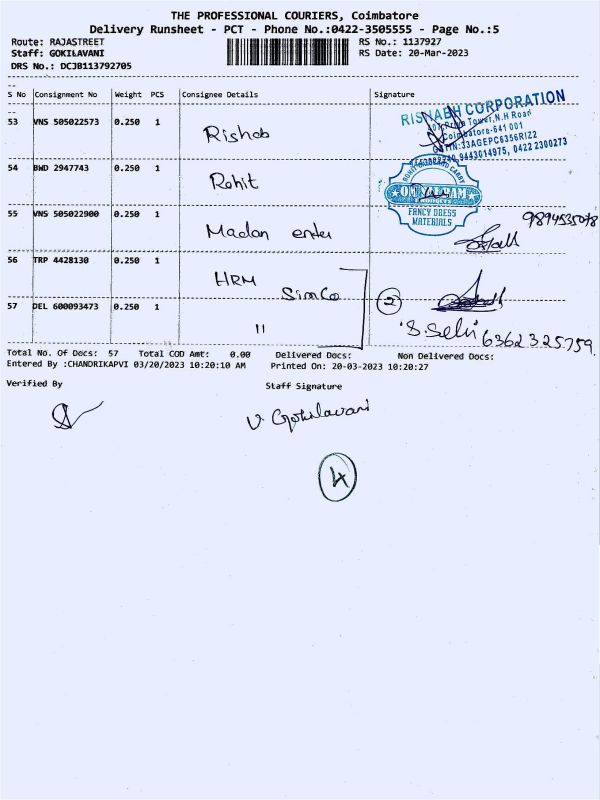 THE PROFESSIONAL COURIERS, Coimbatore
Delivery Runsheet - PCT - Phone No.:0422-3505555 - Page No.:5
Route: RAJASTREET RS No.: 1137927
Staff: GOKILAVANI RS Date: 20-Mar-2023
DRS No.: DCJB113792705
S No Consignment No Weight PCS Consignee Details Signature
53 VNS 505022573 0.250 1 Rishab
RISHABH CORPORATION
Tower, N.H Road
Coimbatore-641 001
GSTIN:33AGEPC6356RIZ2
9443014975, 0422 2300273
54 BWD 2947743 0.250 1 Rohit
FANCY DRESS
MATERIALS
55 VNS 505022900 0.250 1 Madan enter 9894535078
56 TRP 4428130 0.250 1 HRM Simco 2
57 DEL 600093473 0.250 1 11 S. Selvi 6362325759.
Total No. Of Docs: 57 Total COD Amt: 0.00 Delivered Docs: Non Delivered Docs:
Entered By :CHANDRIKAPVI 03/20/2023 10:20:10 AM Printed On: 20-03-2023 10:20:27
Verified By Staff Signature
V. Gokilavani
4